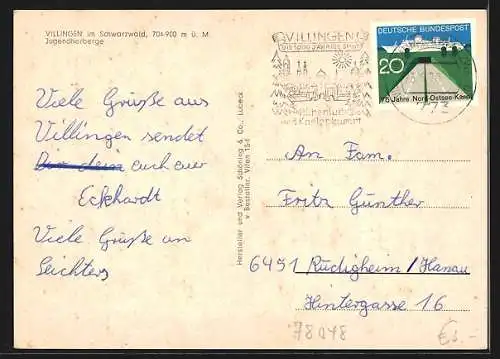 VILLINGEN im Schwarzwald, 704-900 m ü. M.
Jugendherberge
Viele Grüße aus
Villingen sendet
euch euer
Eckhardt
Viele Grüße an
Leichters
Hersteller und Verlag Schöning & Co., Lübeck
Bestellnr. Vilen 154
VILLINGEN
DIE 1000 JÄHRIGE STADT
und Kneippkurort
DEUTSCHE BUNDESPOST
20
75 Jahre Nord-Ostsee-Kanal
773
An Fam.
Fritz Günther
6451 Rüdigheim/Hanau
Hintergasse 16
78048
€3.-